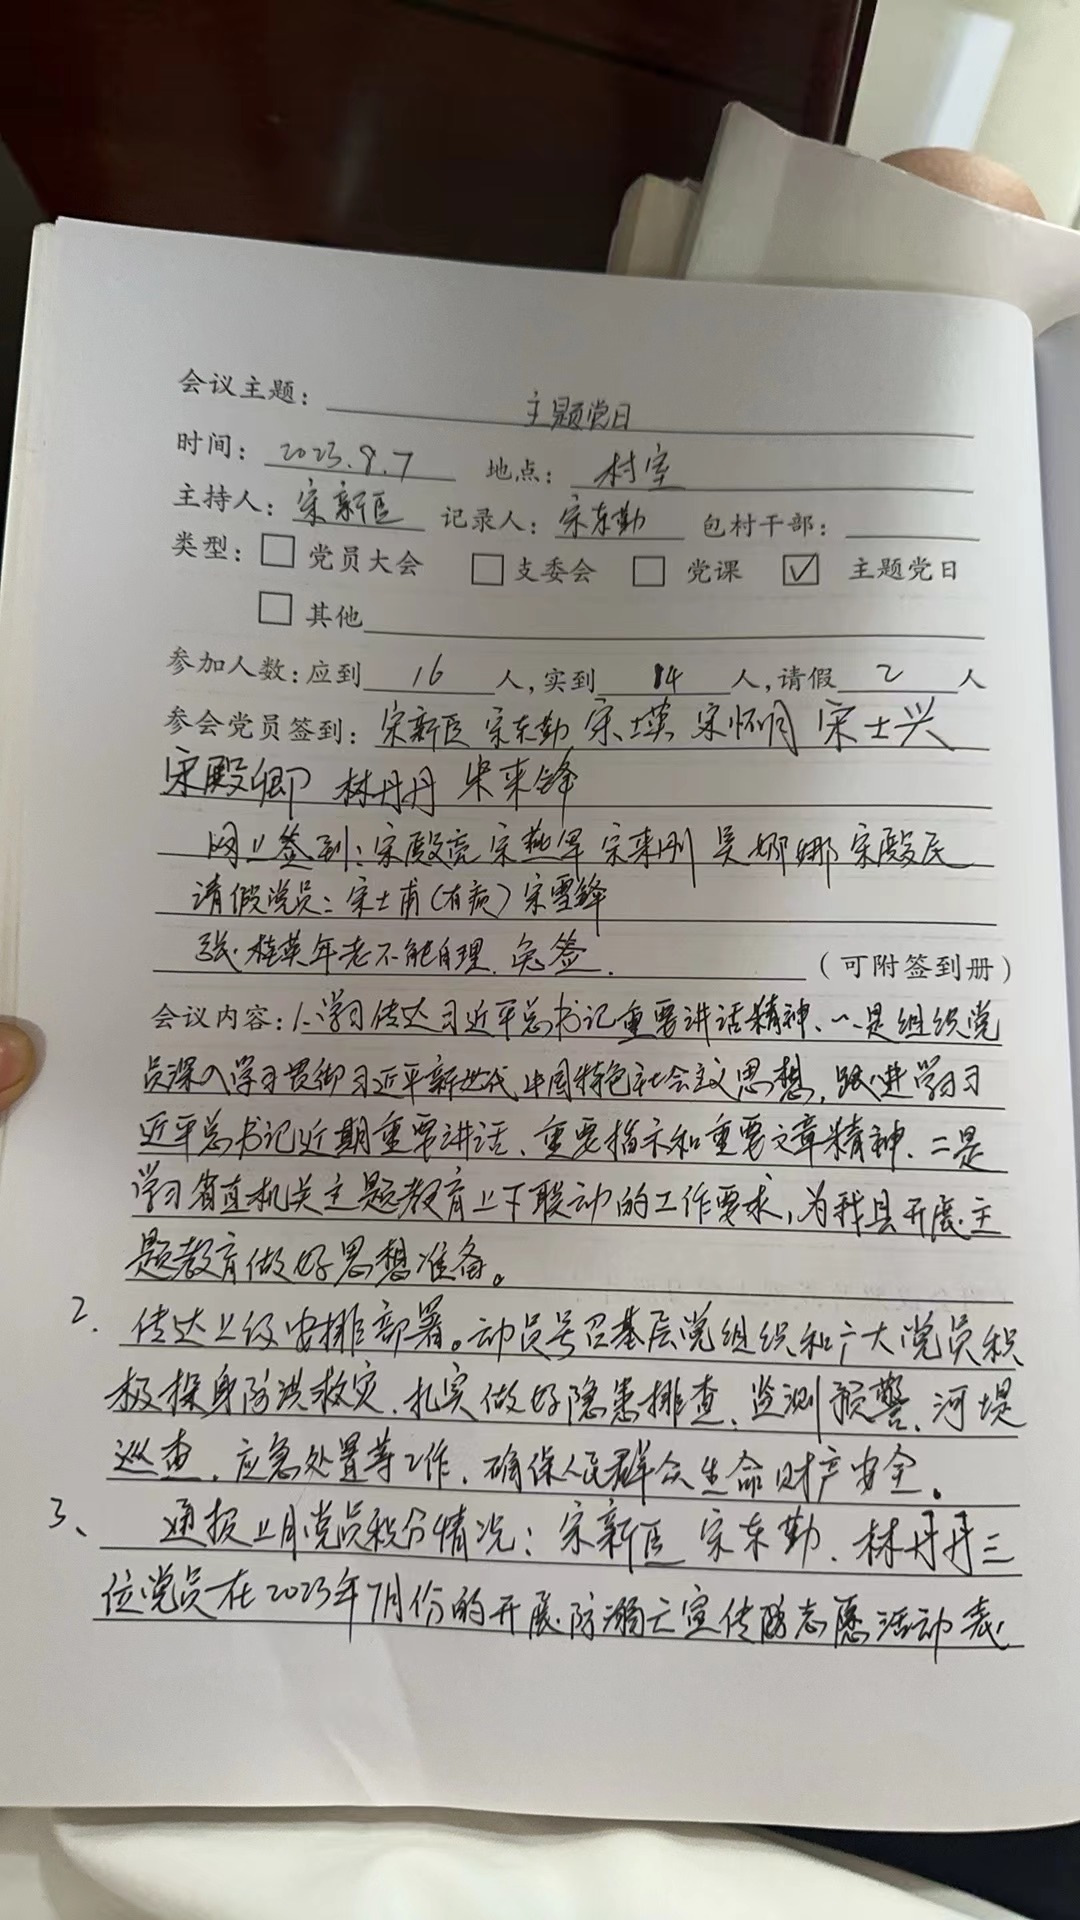 会议主题: 主题党日
时间: 2023.8.7 地点: 村室
主持人: 宋新臣 记录人: 宋东勤 包村干部:
类型: □ 党员大会 □ 支委会 □ 党课 ☑ 主题党日
□ 其他
参加人数: 应到 16 人, 实到 14 人, 请假 2 人
参会党员签到: 宋新臣 宋东勤 宋士英 宋怀月 宋士兴
宋殿卿 林丹丹 宋来锋
网上签到: 宋殿亮 宋燕军 宋来刚 吴娜娜 宋殿民
请假党员: 宋士甫(有病) 宋雪锋
张桂英年老不能自理. 免签. (可附签到册)
会议内容: 1、学习传达习近平总书记重要讲话精神、一是组织党
员深入学习贯彻习近平新时代中国特色社会主义思想, 跟进学习习
近平总书记近期重要讲话、重要指示和重要文章精神、二是
学习省直机关主题教育上下联动的工作要求, 为我县开展主
题教育做好思想准备。
2. 传达上级安排部署。动员号召基层党组织和广大党员积
极投身防洪救灾. 扎实做好隐患排查、监测预警、河堤
巡查. 应急处置等工作. 确保人民群众生命财产安全。
3、 通报上月党员积分情况: 宋新臣 宋东勤. 林丹丹三
位党员在2023年7月份的开展防溺亡宣传 志愿活动表